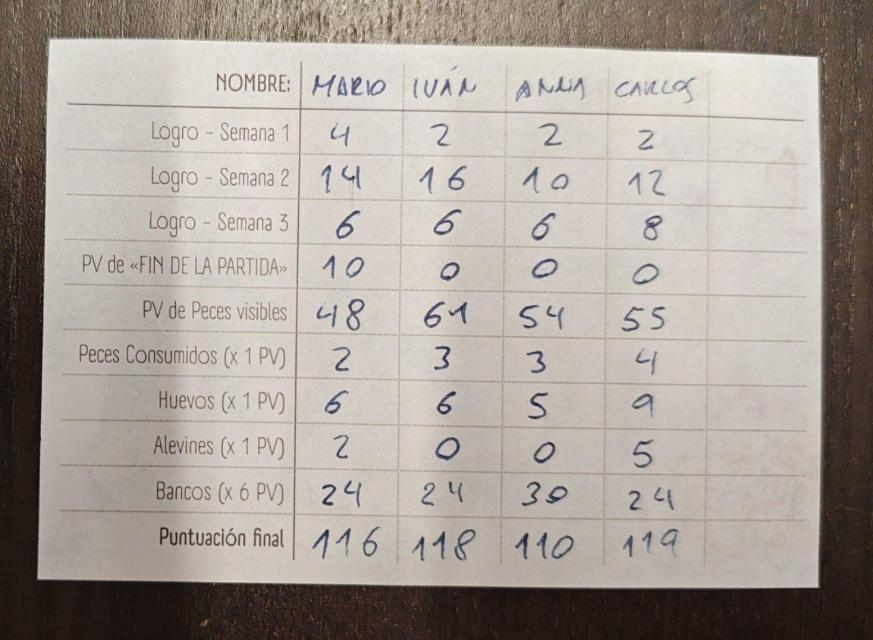 NOMBRE: MARIO IVÁN ANNA CARLOS
Logro - Semana 1 4 2 2 2
Logro - Semana 2 14 16 10 12
Logro - Semana 3 6 6 6 8
PV de «FIN DE LA PARTIDA» 10 0 0 0
PV de Peces visibles 48 61 54 55
Peces Consumidos (x 1 PV) 2 3 3 4
Huevos (x 1 PV) 6 6 5 9
Alevines (x 1 PV) 2 0 0 5
Bancos (x 6 PV) 24 24 30 24
Puntuación final 116 118 110 119